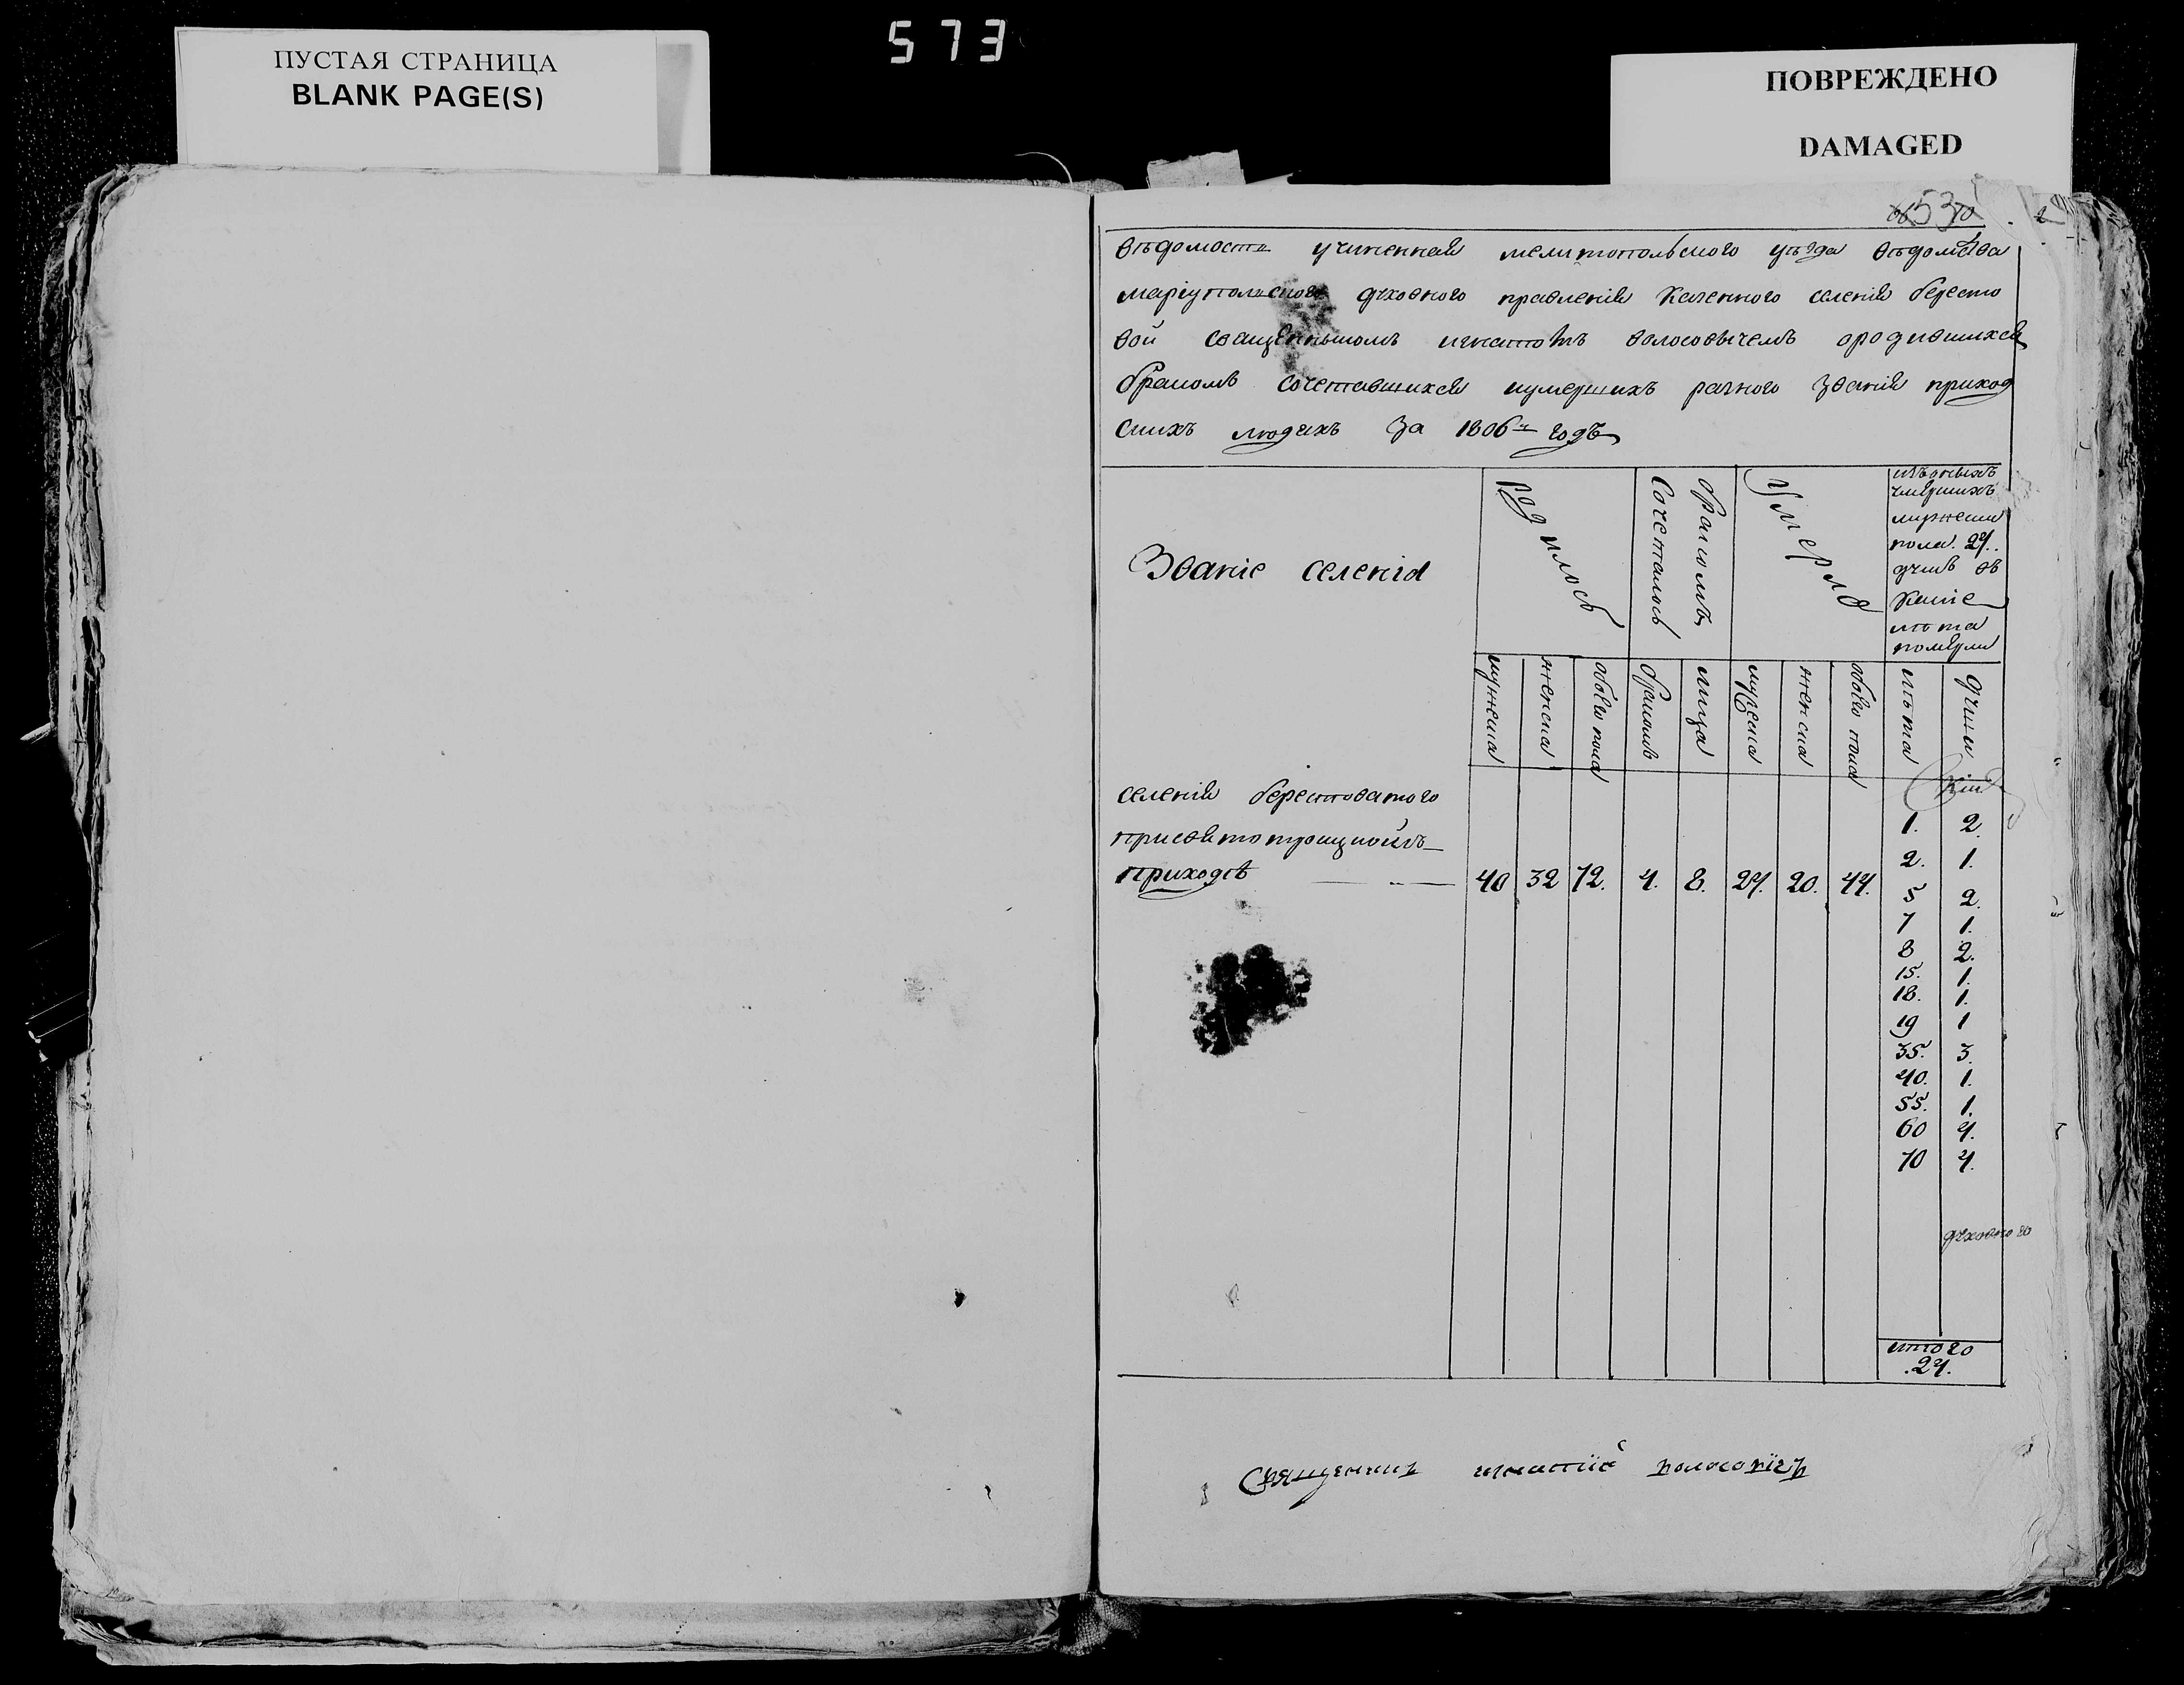 573
ПУСТАЯ СТРАНИЦА
BLANK PAGE(S)
ПОВРЕЖДЕНО
DAMAGED
53
вѣдомость учиненная мелитопольского уѣзда вѣдомства
маріупольского духовного правленія казенного селенія бересто
вой священникомъ игнатіемъ волосовичемъ ородившихся
бракомъ сочетавшихся иумершихъ разного званія приход
скихъ людехъ за 1806й годъ
Званіе селенія
родилось
бракомъ
сочеталось
умерло
умершихъ
мужеска
пола. 24.
душъ въ
какіе
лѣта
померли
мужеска
женска
обоего пола
браковъ
лица
мужеска
женска
обоего пола
лѣта
души
селенія берестоватого
присвято троицкомъ
приходѣ 40 32 72. 4. 8. 24. 20. 44.
1. 2.
2. 1.
5 2.
7 1.
8 2.
15. 1.
18. 1.
19 1
35. 3.
40. 1.
55. 1.
60 4.
70 4.
духовного
итого
24.
Священникъ игнатій волосовичъ